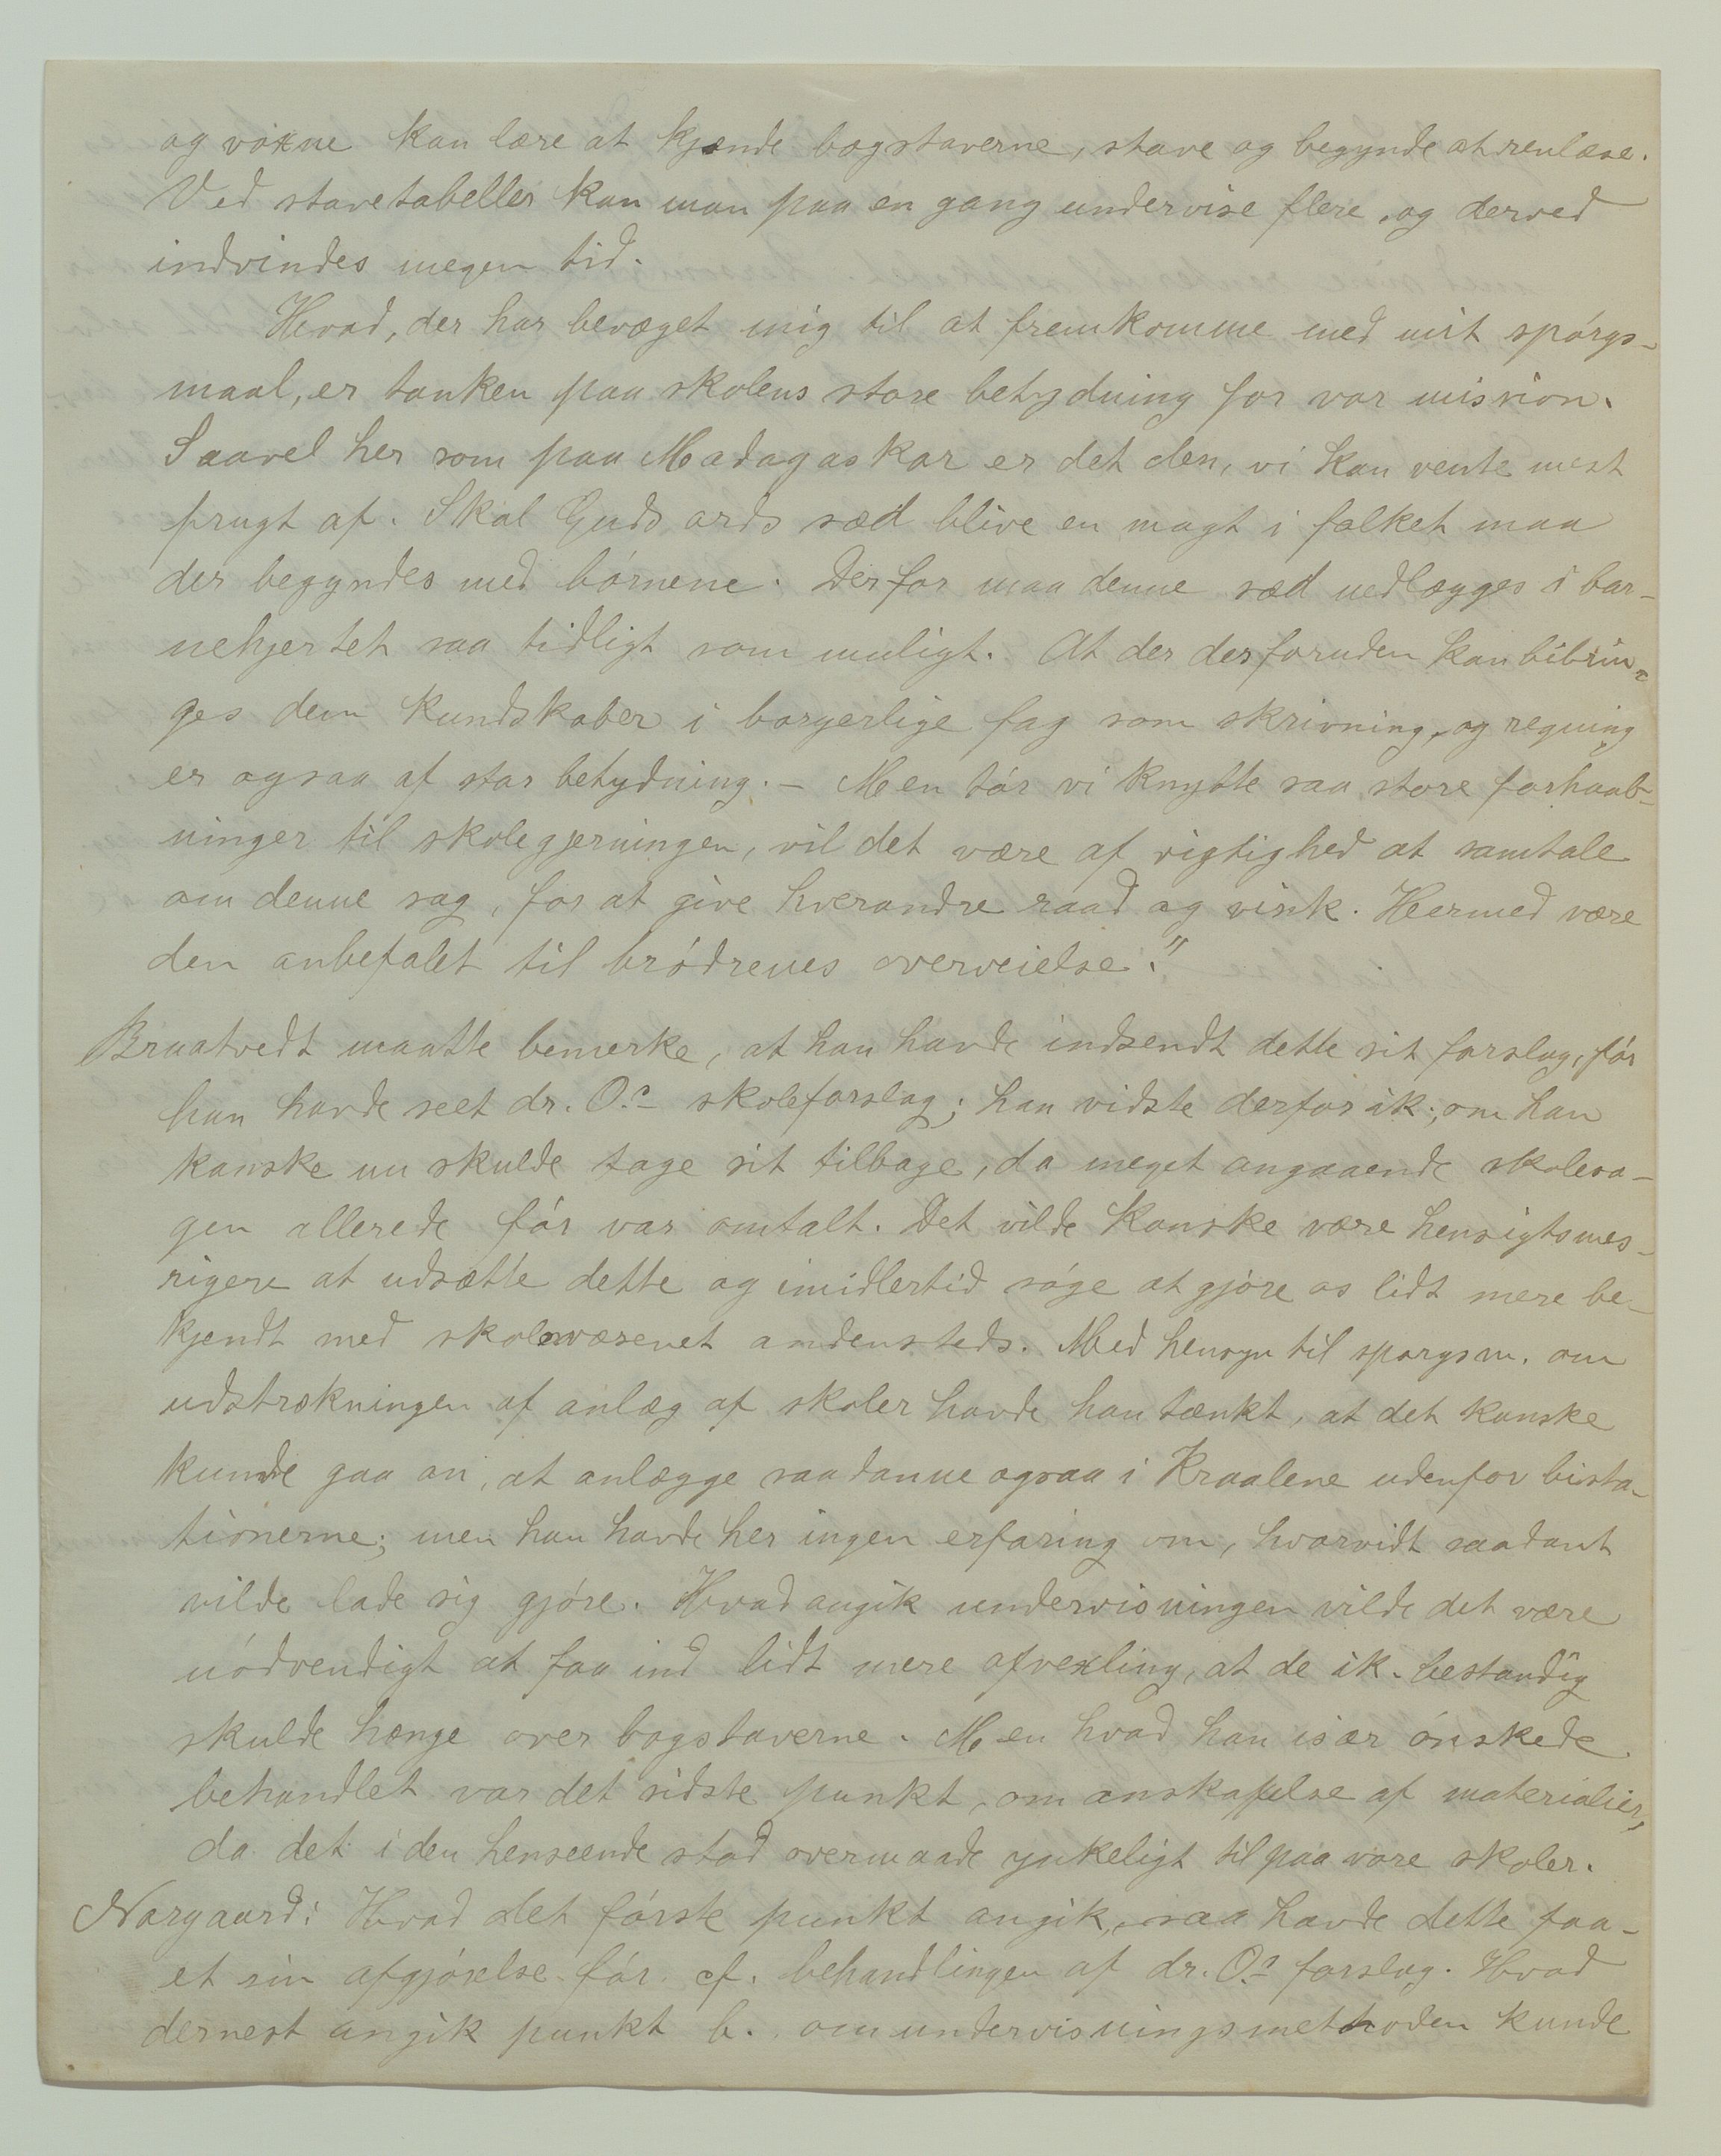 og voxne kan lære at kjende bogstaverne, stave og begynde at renlæse.
Ved stavetabeller kan man paa en gang undervise flere, og derved
indvindes megen tid.
Hvad, der har bevæget mig til at fremkomme med mit spórgs-
maal, er tanken paa skolens store betydning for vor mision.
Saavel her som paa Madagaskar er det den, vi kan vente mest
frugt af. Skal Guds ords sæd blive en magt i folket maa
der begyndes med bórnene. Derfor maa denne sæd nedlægges i bar-
nehjertet saa tidligt som muligt. At der desforuden kan bibrin-
ges dem kundskaber i borgerlige fag som skrivning, og regning
er ogsaa af stor betydning. – Men tór vi knytte saa store forhaab-
ninger til skolegjerningen, vil det være af vigtighed at samtale
om denne sag, for at give hverandre raad og vink. Hermed være
den anbefalet til bródrenes overveielse."
Braatvedt maatte bemerke, at han havde indsendt dette sit forslag, fór
han havde seet dr. O.s skoleforslag; han vidste derfor ik., om han
kanske nu skulde tage sit tilbage, da meget angaaende skolesa-
gen allerede fór var omtalt. Det vilde kanske være hensigtsmes-
sigere at udsætte dette og imidlertid sóge at gjóre os lidt mere be-
kjendt med skolevæsenet andensteds. Med hensyn til spórgsm. om
udstrækningen af anlæg af skoler havde han tænkt, at det kanske
kunde gaa an, at anlægge saadanne ogsaa i Kraalene udenfor bista-
tionerne; men han havde her ingen erfaring om, hvorvidt saadant
vilde lade sig gjóre. Hvad angik undervisningen vilde det være
nódvendigt at faa ind lidt mere afvexling, at de ik. bestandig
skulde hænge over bogstaverne. Men hvad han især ónskede
behandlet var det sidste punkt, om anskaffelse af materialier,
da det i den henseende stod overmaade ynkeligt til paa vore skoler.
Norgaard: Hvad det fórste punkt angik, saa havde dette faa-
et sin afgjórelse fór cf. behandlingen af dr. O.s forslag. Hvad
dernest angik punkt b. om undervisningsmethoden kunde